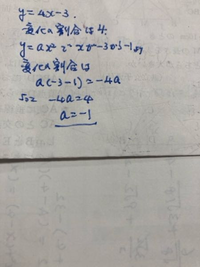 y=4x-3.
変化の割合は4.
y=ax² で xが-3から-1の
変化の割合は
a(-3-1)=-4a
よって -4a=4
a=-1